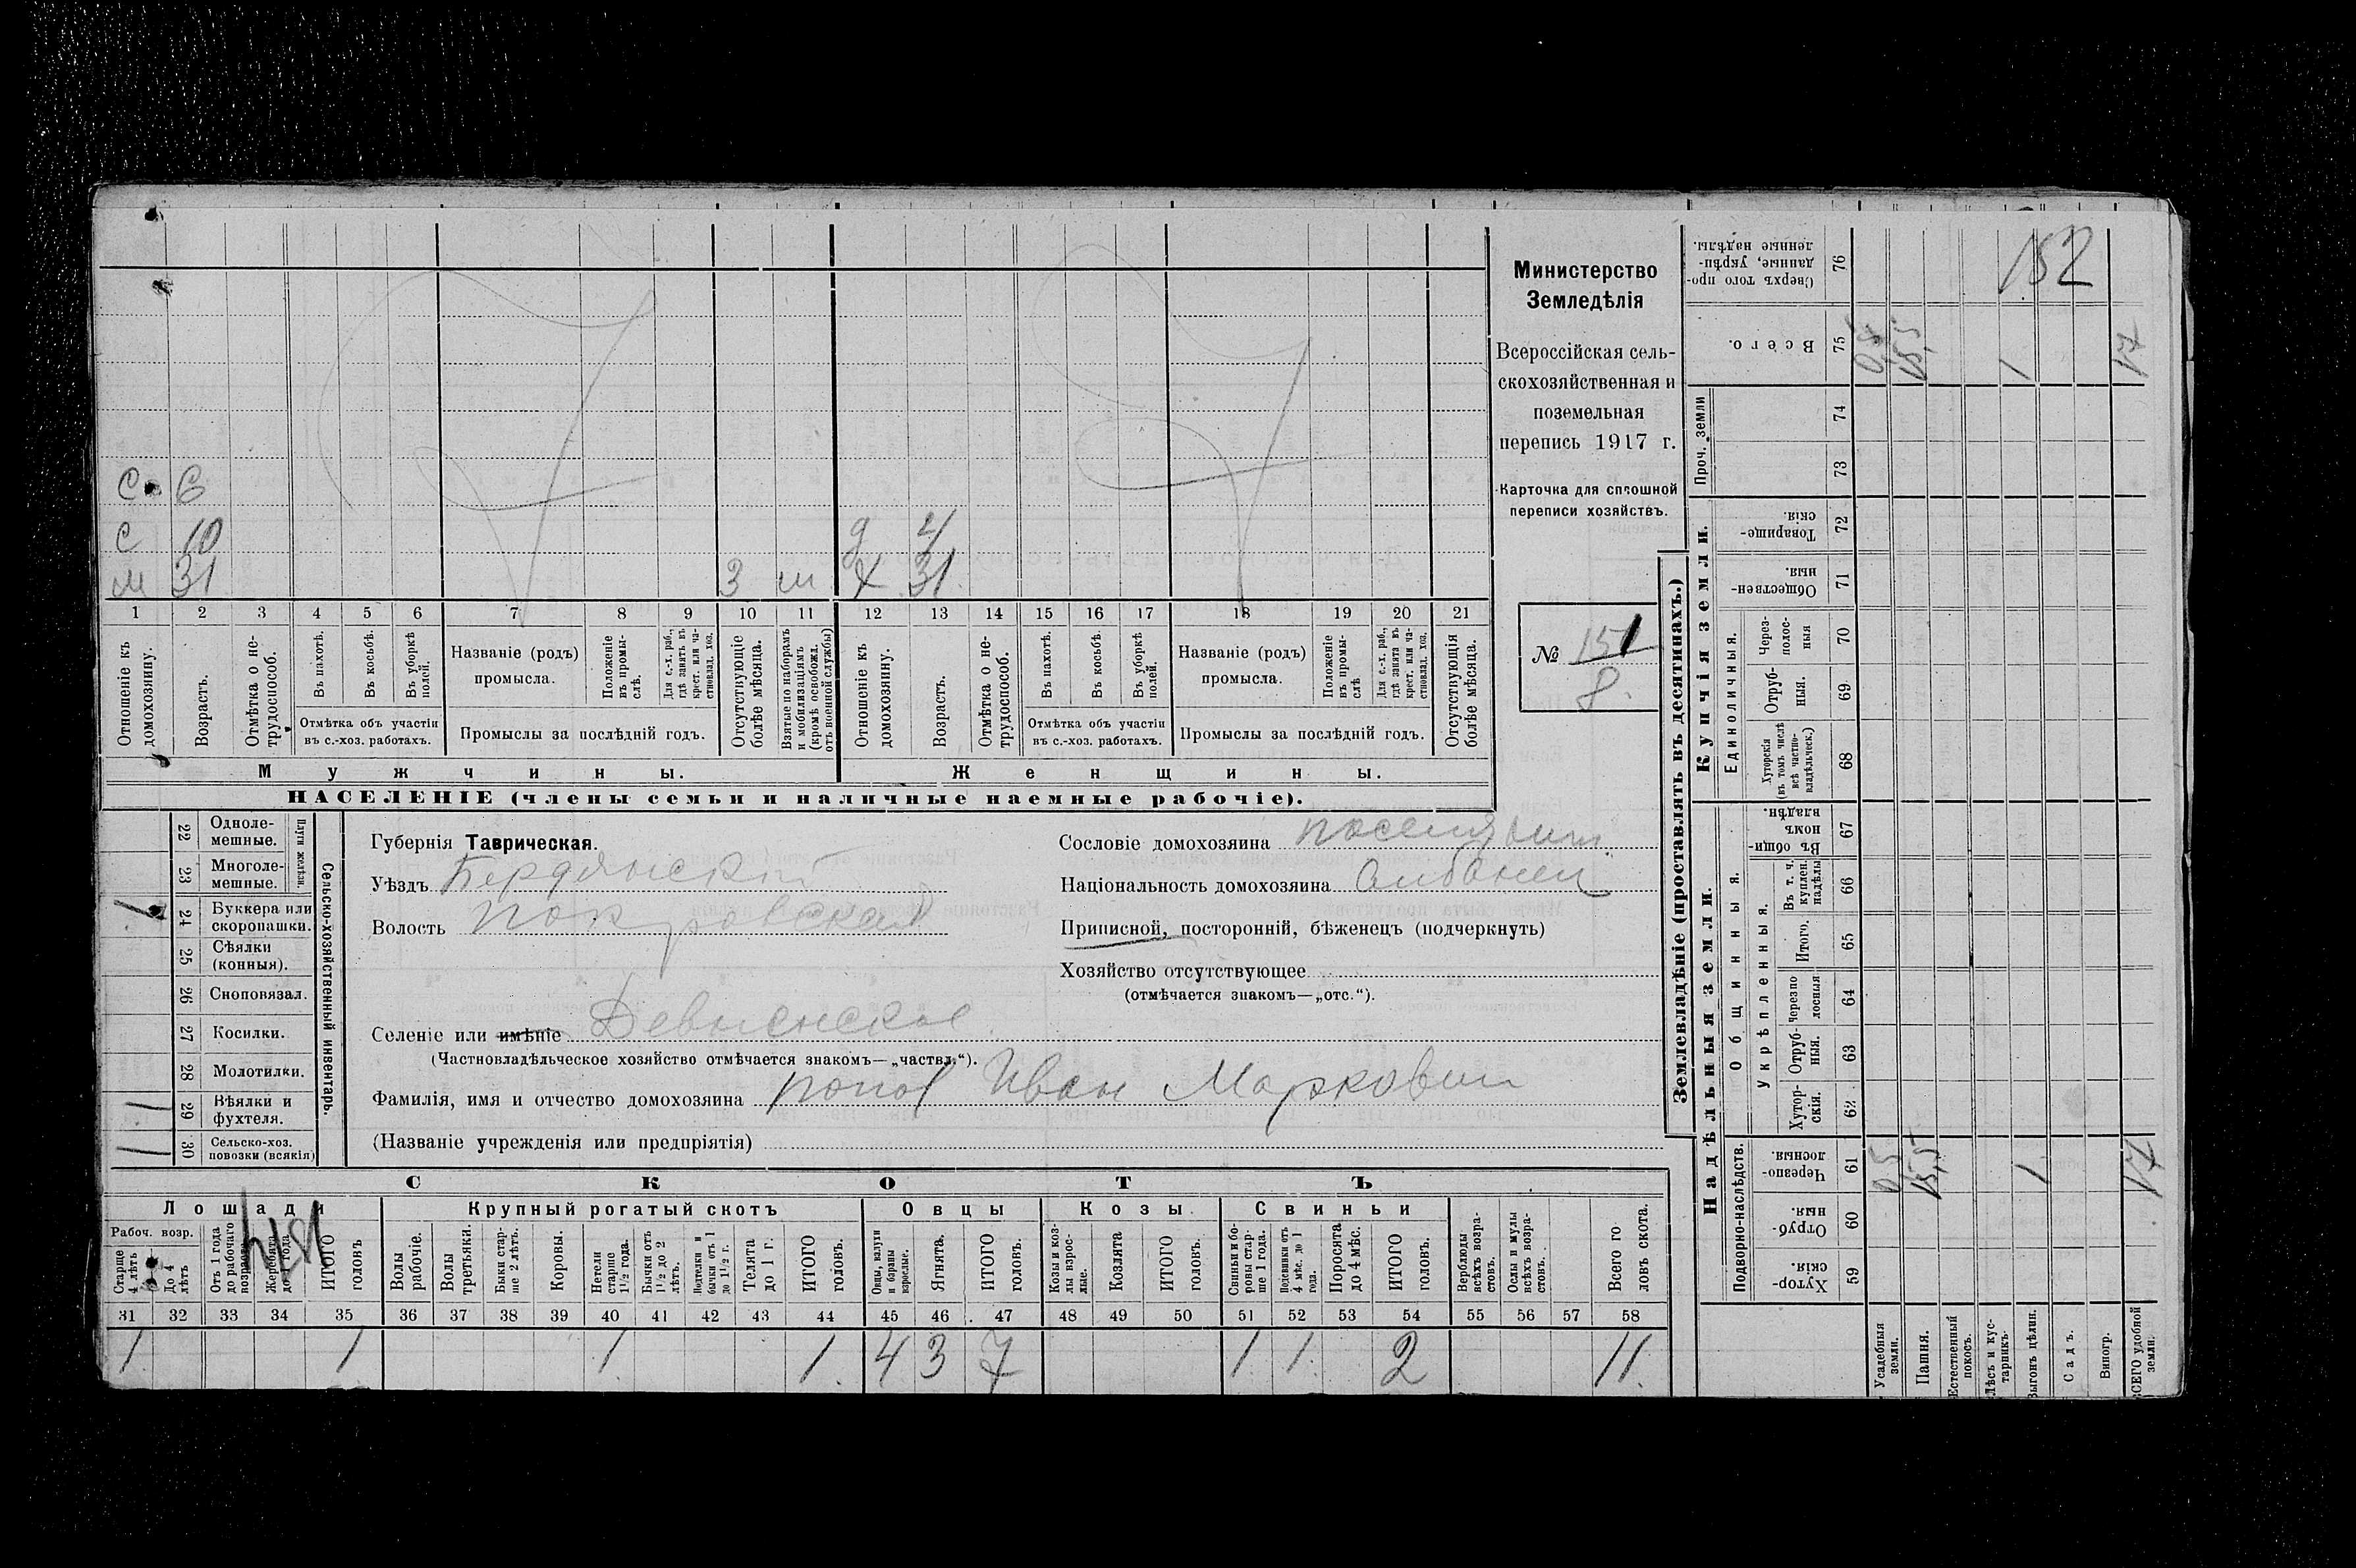 152
Министерство
Земледѣлія
Всероссійская сель-
скохозяйственная и
поземельная
перепись 1917 г.
Карточка для сплошной
переписи хозяйствъ.
№ 151
8.
С 6
С 10 д 4
м 31 3 м ж 31
1 2 3 4 5 6 7 8 9 10 11 12 13 14 15 16 17 18 19 20 21
Отношеніе къ домохозяину.
Возрастъ.
Отмѣтка о не-трудоспособ.
Въ пахотѣ.
Въ косьбѣ.
Въ уборкѣ полей.
Отмѣтка объ участіи въ с.-хоз. работахъ.
Названіе (родъ) промысла.
Положеніе въ промы-слѣ.
Для с.-х. раб., гдѣ занятъ въ крест. или ча-стновлад. хоз.
Промыслы за послѣдній годъ.
Отсутствующіе болѣе мѣсяца.
Взятые по наборамъ и мобилизаціямъ (кромѣ освобожд. отъ военной службы)
Отношеніе къ домохозяину.
Возрастъ.
Отмѣтка о не-трудоспособ.
Въ пахотѣ.
Въ косьбѣ.
Въ уборкѣ полей.
Отмѣтка объ участіи въ с.-хоз. работахъ.
Названіе (родъ) промысла.
Положеніе въ промы-слѣ
Для с.-х. раб., гдѣ занята въ крест. или ча-стновлад. хоз.
Промыслы за послѣдній годъ.
Отсутствующія болѣе мѣсяца.
Мужчины. Женщины.
НАСЕЛЕНІЕ (члены семьи и наличные наемные рабочіе).
Сельско-хозяйственный инвентарь.
Плуги желѣзн.
22 Одноле-мешные.
23 Многоле-мешные.
1 24 Буккера или скоропашки.
25 Сѣялки (конныя).
26 Сноповязал.
27 Косилки.
28 Молотилки.
1 29 Вѣялки и фухтеля.
1 30 Сельско-хоз. повозки (всякія)
Губернія Таврическая.
Уѣздъ Бердянскій
Волость Покровская
Селеніе или имѣніе Девненское
(Частновладѣльческое хозяйство отмѣчается знакомъ—„частвл.“).
Фамилія, имя и отчество домохозяина Попов Иван Маркович
(Названіе учрежденія или предпріятія)
Сословіе домохозяина поселянин
Національность домохозяина Албанец
Приписной, посторонній, бѣженецъ (подчеркнуть)
Хозяйство отсутствующее
(отмѣчается знакомъ—„отс.“).
СКОТЪ
Лошади Крупный рогатый скотъ Овцы Козы. Свиньи
Рабоч. возр.
Старше 4 лѣтъ
До 4 лѣтъ
Отъ 1 года до рабочаго возраста
Жеребята до 1 года
ИТОГО головъ
Волы рабочіе.
Волы третьяки.
Быки стар-ше 2 лѣтъ.
Коровы.
Нетели старше 1½ года.
Бычки отъ 1½ до 2 лѣтъ.
Подтелки и бычки отъ 1 до 1½ г.
Телята до 1 г.
ИТОГО головъ.
Овцы, валухи и бараны взрослые.
Ягнята.
ИТОГО головъ.
Козы и коз-лы взрос-лые.
Козлята
ИТОГО головъ.
Свиньи и бо-ровы стар-ше 1 года.
Подсвинки отъ 4 мѣс. до 1 года.
Поросята до 4 мѣс.
ИТОГО головъ.
Верблюды всѣхъ возра-стовъ.
Ослы и мулы всѣхъ возра-стовъ.
Всего го-ловъ скота.
31 32 33 34 35 36 37 38 39 40 41 42 43 44 45 46 47 48 49 50 51 52 53 54 55 56 57 58
1 1 1 1. 4 3 7 1 1. 2 11.
Землевладѣніе (проставлять въ десятинахъ.)
Надѣльныя земли. Купчія земли. Проч. земли
Подворно-наслѣдств.
Общинныя.
Укрѣпленныя.
Единоличныя.
Сверхъ того про-данные, укрѣп-ленные надѣлы. 76
Всего. 75 0,5 15,5 1 17
74
73
Товарище-скія. 72
Обществен-ныя. 71
Через-полос-ныя 70
Отруб-ныя. 69
Хуторскія (въ томъ числѣ всѣ частно-владѣльческ.) 68
Въ общин-номъ владѣн. 67
Въ т. ч. куплен. надѣлы 66
Итого. 65
Черезпо-лосныя 64
Отруб-ныя. 63
Хутор-скія. 62
Черезпо-лосныя. 61 0,5 15,5 1 17
Отруб-ныя. 60
Хутор-скія. 59
Усадебныя земли.
Пашня.
Естественный покосъ.
Лѣсъ и кус-тарникъ.
Выгонъ цѣлин.
Садъ.
Виногр.
ВСЕГО удобной земли.